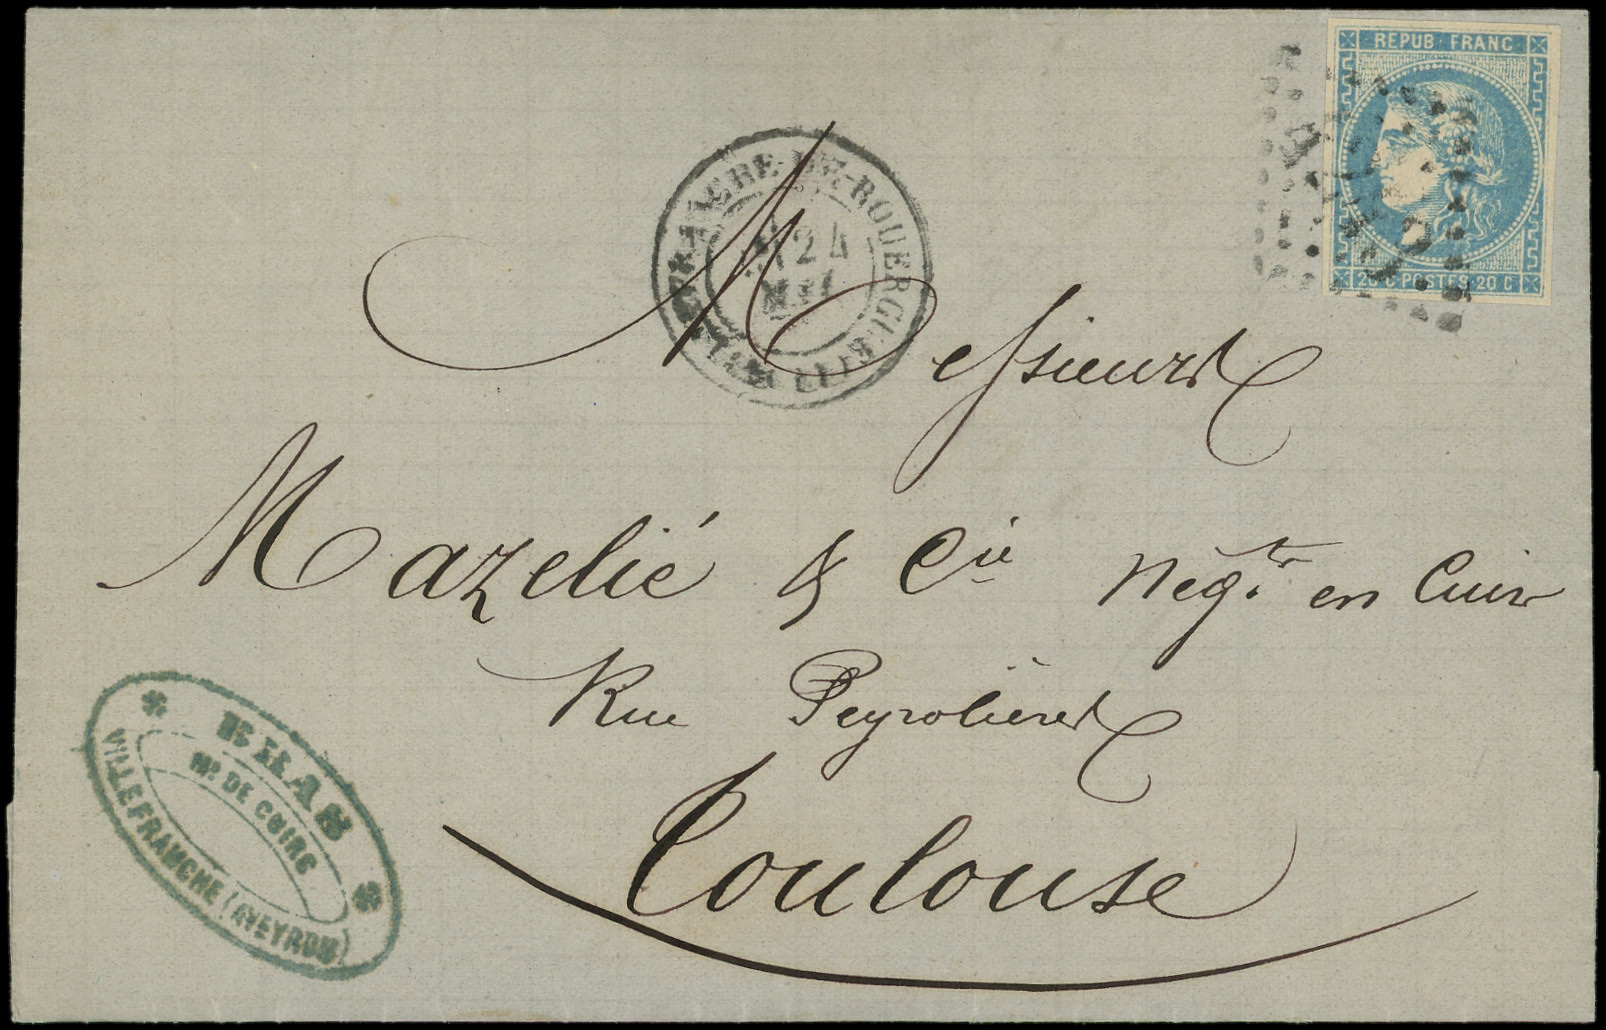 REPUB FRANC
20 C POSTES 20 C
VILLEFRANCHE-DE-ROUERGUE (11)
24
Messieurs
Mazelié & Cie Négt. en Cuirs
Rue Peyrolières
Toulouse
BRAS
MD DE CUIRS
VILLEFRANCHE (AVEYRON)